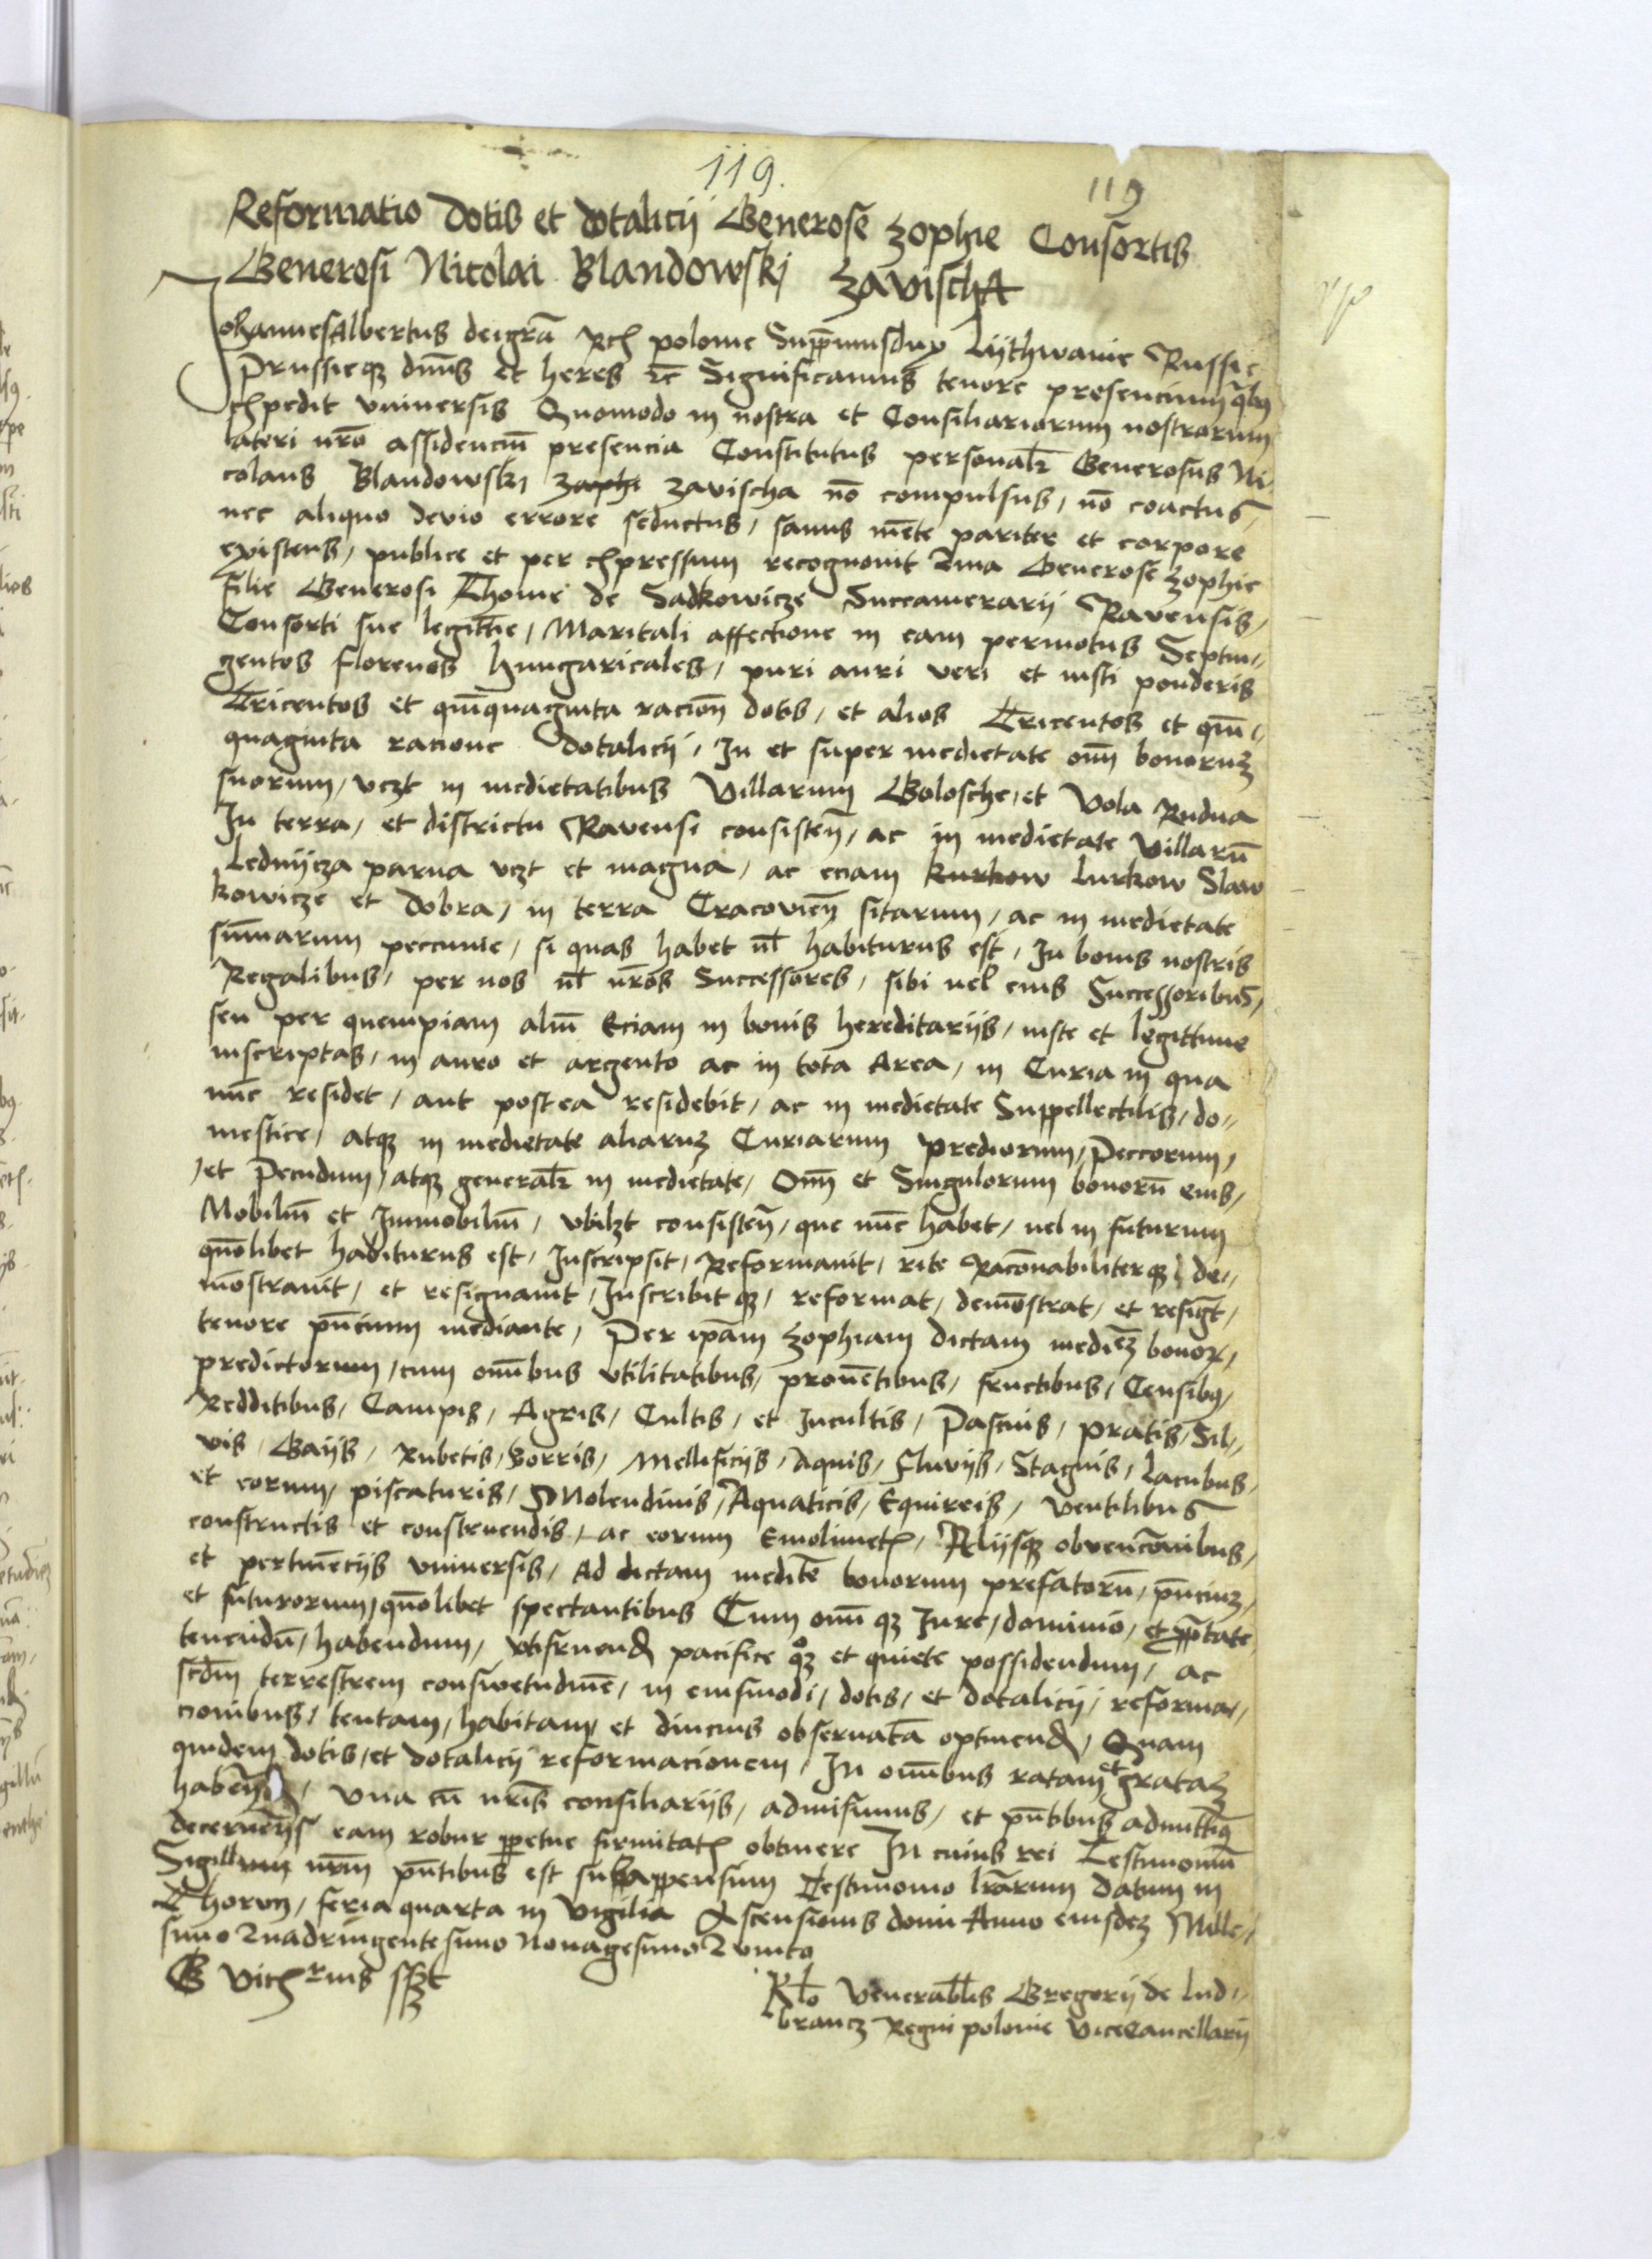 119.
119
Reformatio dotis et dotalicij Generose Zophie Consortis
Generosi Nicolai Blandowskj Zavischa
Johannes Albertus dei gra Rex polonie Suppremusdux Lythwanie Russie
Prussieqz dnus et heres etc Significamus tenore presencium qbus
expedit vniuersis Quomodo in nostra et Consiliariorum nostrorum
lateri nro assidencium presencia Constitutus personalr Generosus Ni
colaus Blandowskj Zophi Zavischa no compulsus, no coactus,
nec aliquo devio errore seductus, sanus mete pariter et corpore
existens, publice et per expressum recognouit Qma Generose Zophie
filie Generosi Thome de Sadkowicze Succamerarij Ravensis,
Consorti sue legittie, Maritali affectione in eam permotus Septin
gentos florenos hungaricales, puri auri veri et iusti ponderis
Tricentos et quiquaginta racion dotis, et alios Tricentos et qui
quaginta racione dotalicij, In et super medietate omn bonoruz
suorum, vczt in medietatibus Villarum Golosche, et Vola Rudna
In terra, et districtu Ravensi consisten, ac in medietate Villaru
Lednijcza parua vczt et magna, ac eciam kurkow Lurkow Slaw
kowicze et dobra, in terra Cracovien sitarum, ac in medietate
summarum peccunie, si quas habet ul habiturus est, In bonis nostris
Regalibus, per nos ul nros Successores, sibi uel eius Successoribus,
seu per quempiam aliu Eciam in bonis hereditarijs, iuste et legittime
inscriptas, in auro et argento ac in tota Area, in Curia in qua
nuc residet, aut postea residebit, ac in medietate Suppellectilis, do
mestice, atqz in medietate aliaruz Curiarum prediorum, Peccorum,
et Pecudum, atqz generalr in medietate, Omn et Singulorum bonoru eius,
Mobiliu et Immobiliu, vbilzt consisten, que nuc habet, uel in futurum
quolibet habiturus est, Inscripsit, Reformauit, rite Raconabiliterqz de
mostrauit, et resignauit, Inscribitqz, reformat, demostrat, et resigt,
tenore pncium mediante, Per ipam Zophiam dictam medietz bonor,
predictorum, cum omibus vtilitatibus, prouetibus, fructibus, Censibus,
Redditibus, Campis, Agris, Cultis, et Incultis, Pascuis, pratis, Sil
vis, Gaijs, Rubetis, Borris, Mellificijs, Aquis, Fluvijs, Stagnis, Lacubus,
et eorum, piscaturis, Molendinis, Aquaticis, Equireis, ventilibus
constructis et construendis, ac eorum Emolimetz, Alijsqz obvencoibus,
et pertinecijs vniuersis, Ad dictam medite bonorum prefatoru, pnciuz
et futurorum, quolibet spectantibus Cum omi qz Iure, dominio, et pptate
tenendu, habendum, vtifruend pacifice qz et quiete possidendum, ac
scdm terrestrem consuetudine, in eiusmodi, dotis, et dotalicij, reforma
cionibus, tentam, habitam, et diucius obseruata optinend, Quam
quidem dotis, et dotalicij reformacionem, In omibus ratam et grataz
haben, Vna cu nris consiliarijs, admisimus, et pntibus admittiqz
decernetes eam robur ppetue firmitatz obtinere In cuius rei Testimoniu
Sigillum nrm pntibus est subappensum Testimonio lrarum Datum in
Thorun, feria quarta in Vigilia Ascensionis domi Anno eiusdez Mille
simo Quadringentesimo Nonagesimo Quinto
G Vicerius sszt
Rlo Venerablis Gregorij de Lud
brancz Regni polonie ViceCancellarij